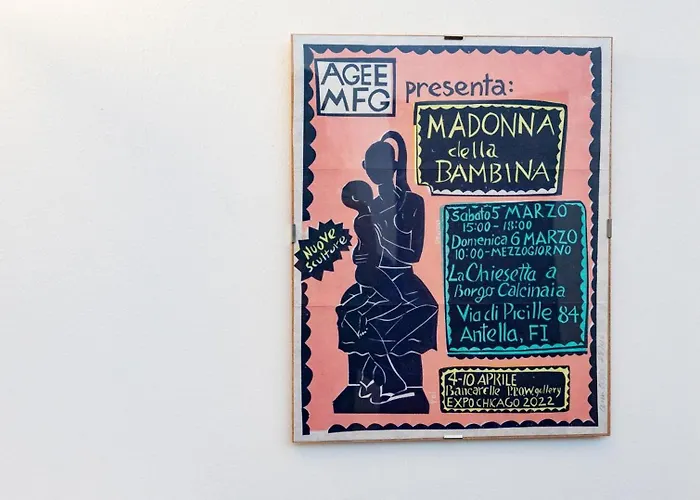 AGEE
MFG
presenta:
MADONNA
della
BAMBINA
Nuove
Sculture
Sabato 5 MARZO
15:00 - 18:00
Domenica 6 MARZO
10:00 - MEZZOGIORNO
La Chiesetta a
Borgo Calcinaia
Via di Picille 84
Antella, FI
4-10 APRILE
Bancarelle PPOW gallery
EXPO CHICAGO 2022